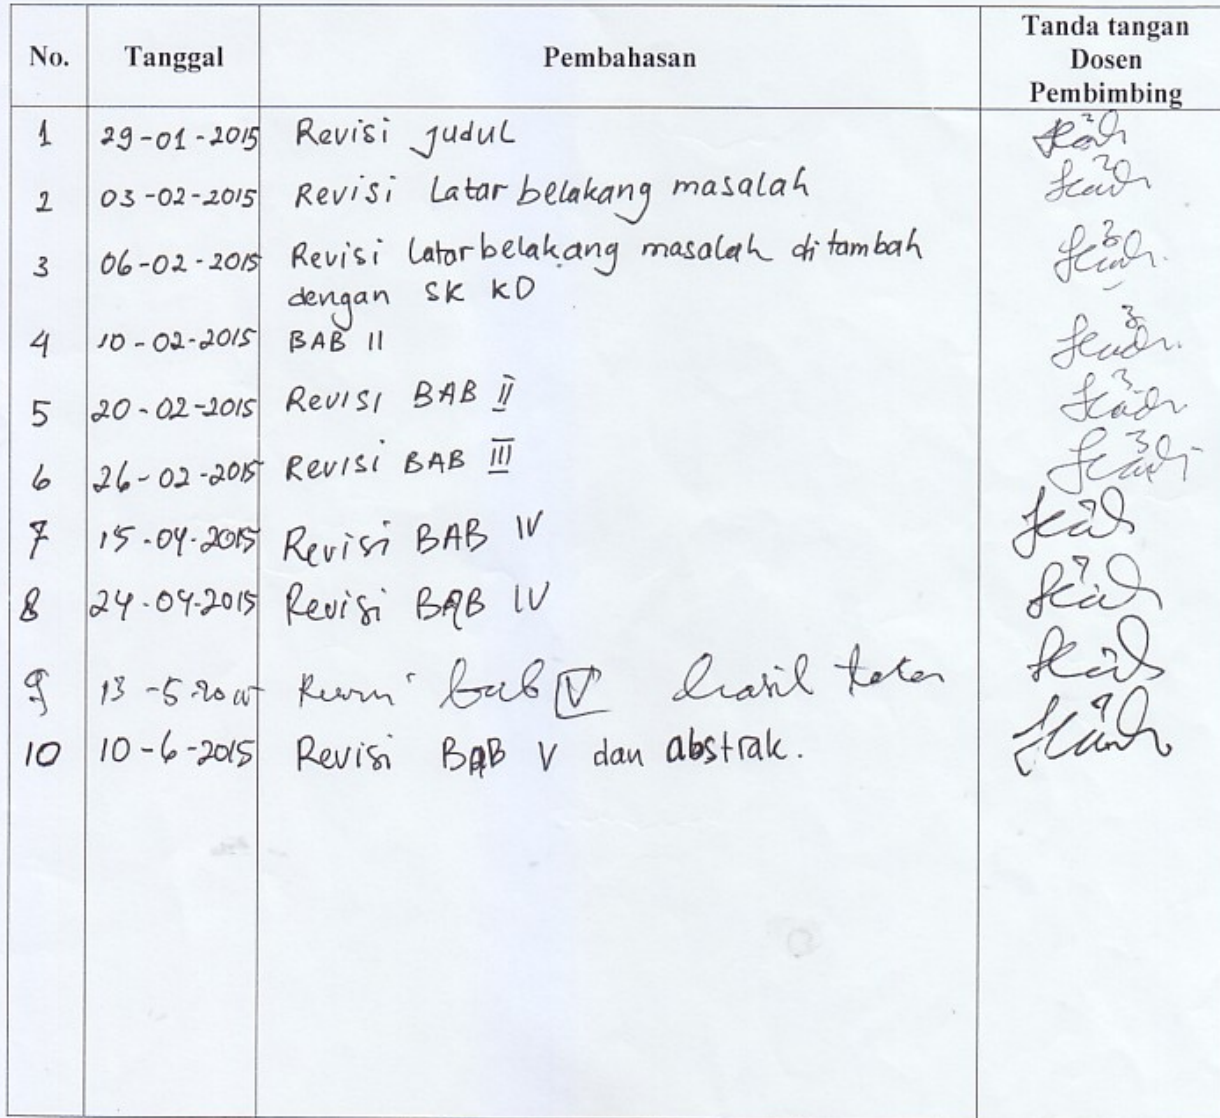 No. Tanggal Pembahasan Tanda tangan Dosen Pembimbing
1 29-01-2015 Revisi judul
2 03-02-2015 Revisi Latar belakang masalah
3 06-02-2015 Revisi Latar belakang masalah ditambah
dengan SK KD
4 10-02-2015 BAB II
5 20-02-2015 Revisi BAB II
6 26-02-2015 Revisi BAB III
7 15-04-2015 Revisi BAB IV
8 24-04-2015 Revisi BAB IV
9 13-5- bab V hasil
10 10-6-2015 Revisi BAB V dan abstrak.